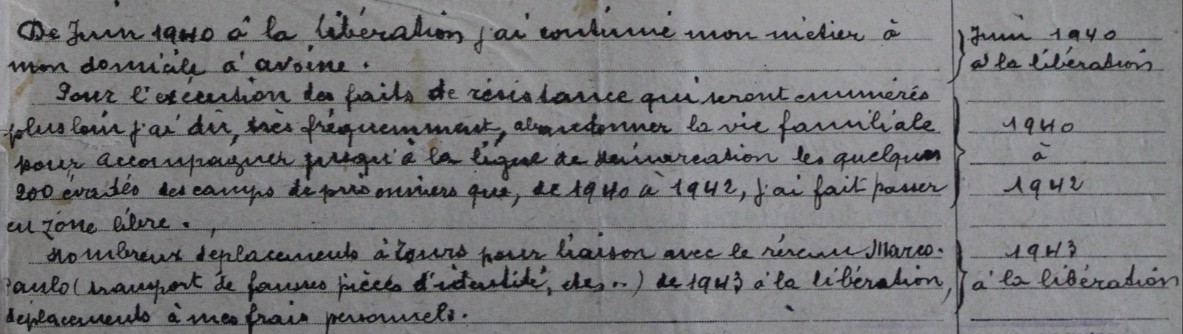 De Juin 1940 à la libération j'ai continué mon métier à
mon domicile à avoine.
Pour l'exécution des faits de résistance qui seront énumérés
plus loin j'ai dû, très fréquemment, abandonner la vie familiale
pour accompagner jusqu'à la ligne de démarcation les quelques
200 évadés des camps de prisonniers que, de 1940 à 1942, j'ai fait passer
en zone libre.
Nombreux déplacements à Tours pour liaison avec le réseau Marco-
Paulo (transport de fausses pièces d'identité, etc..) de 1943 à la libération,
déplacements à mes frais personnels.
Juin 1940
à la libération
1940
à
1942
1943
à la libération